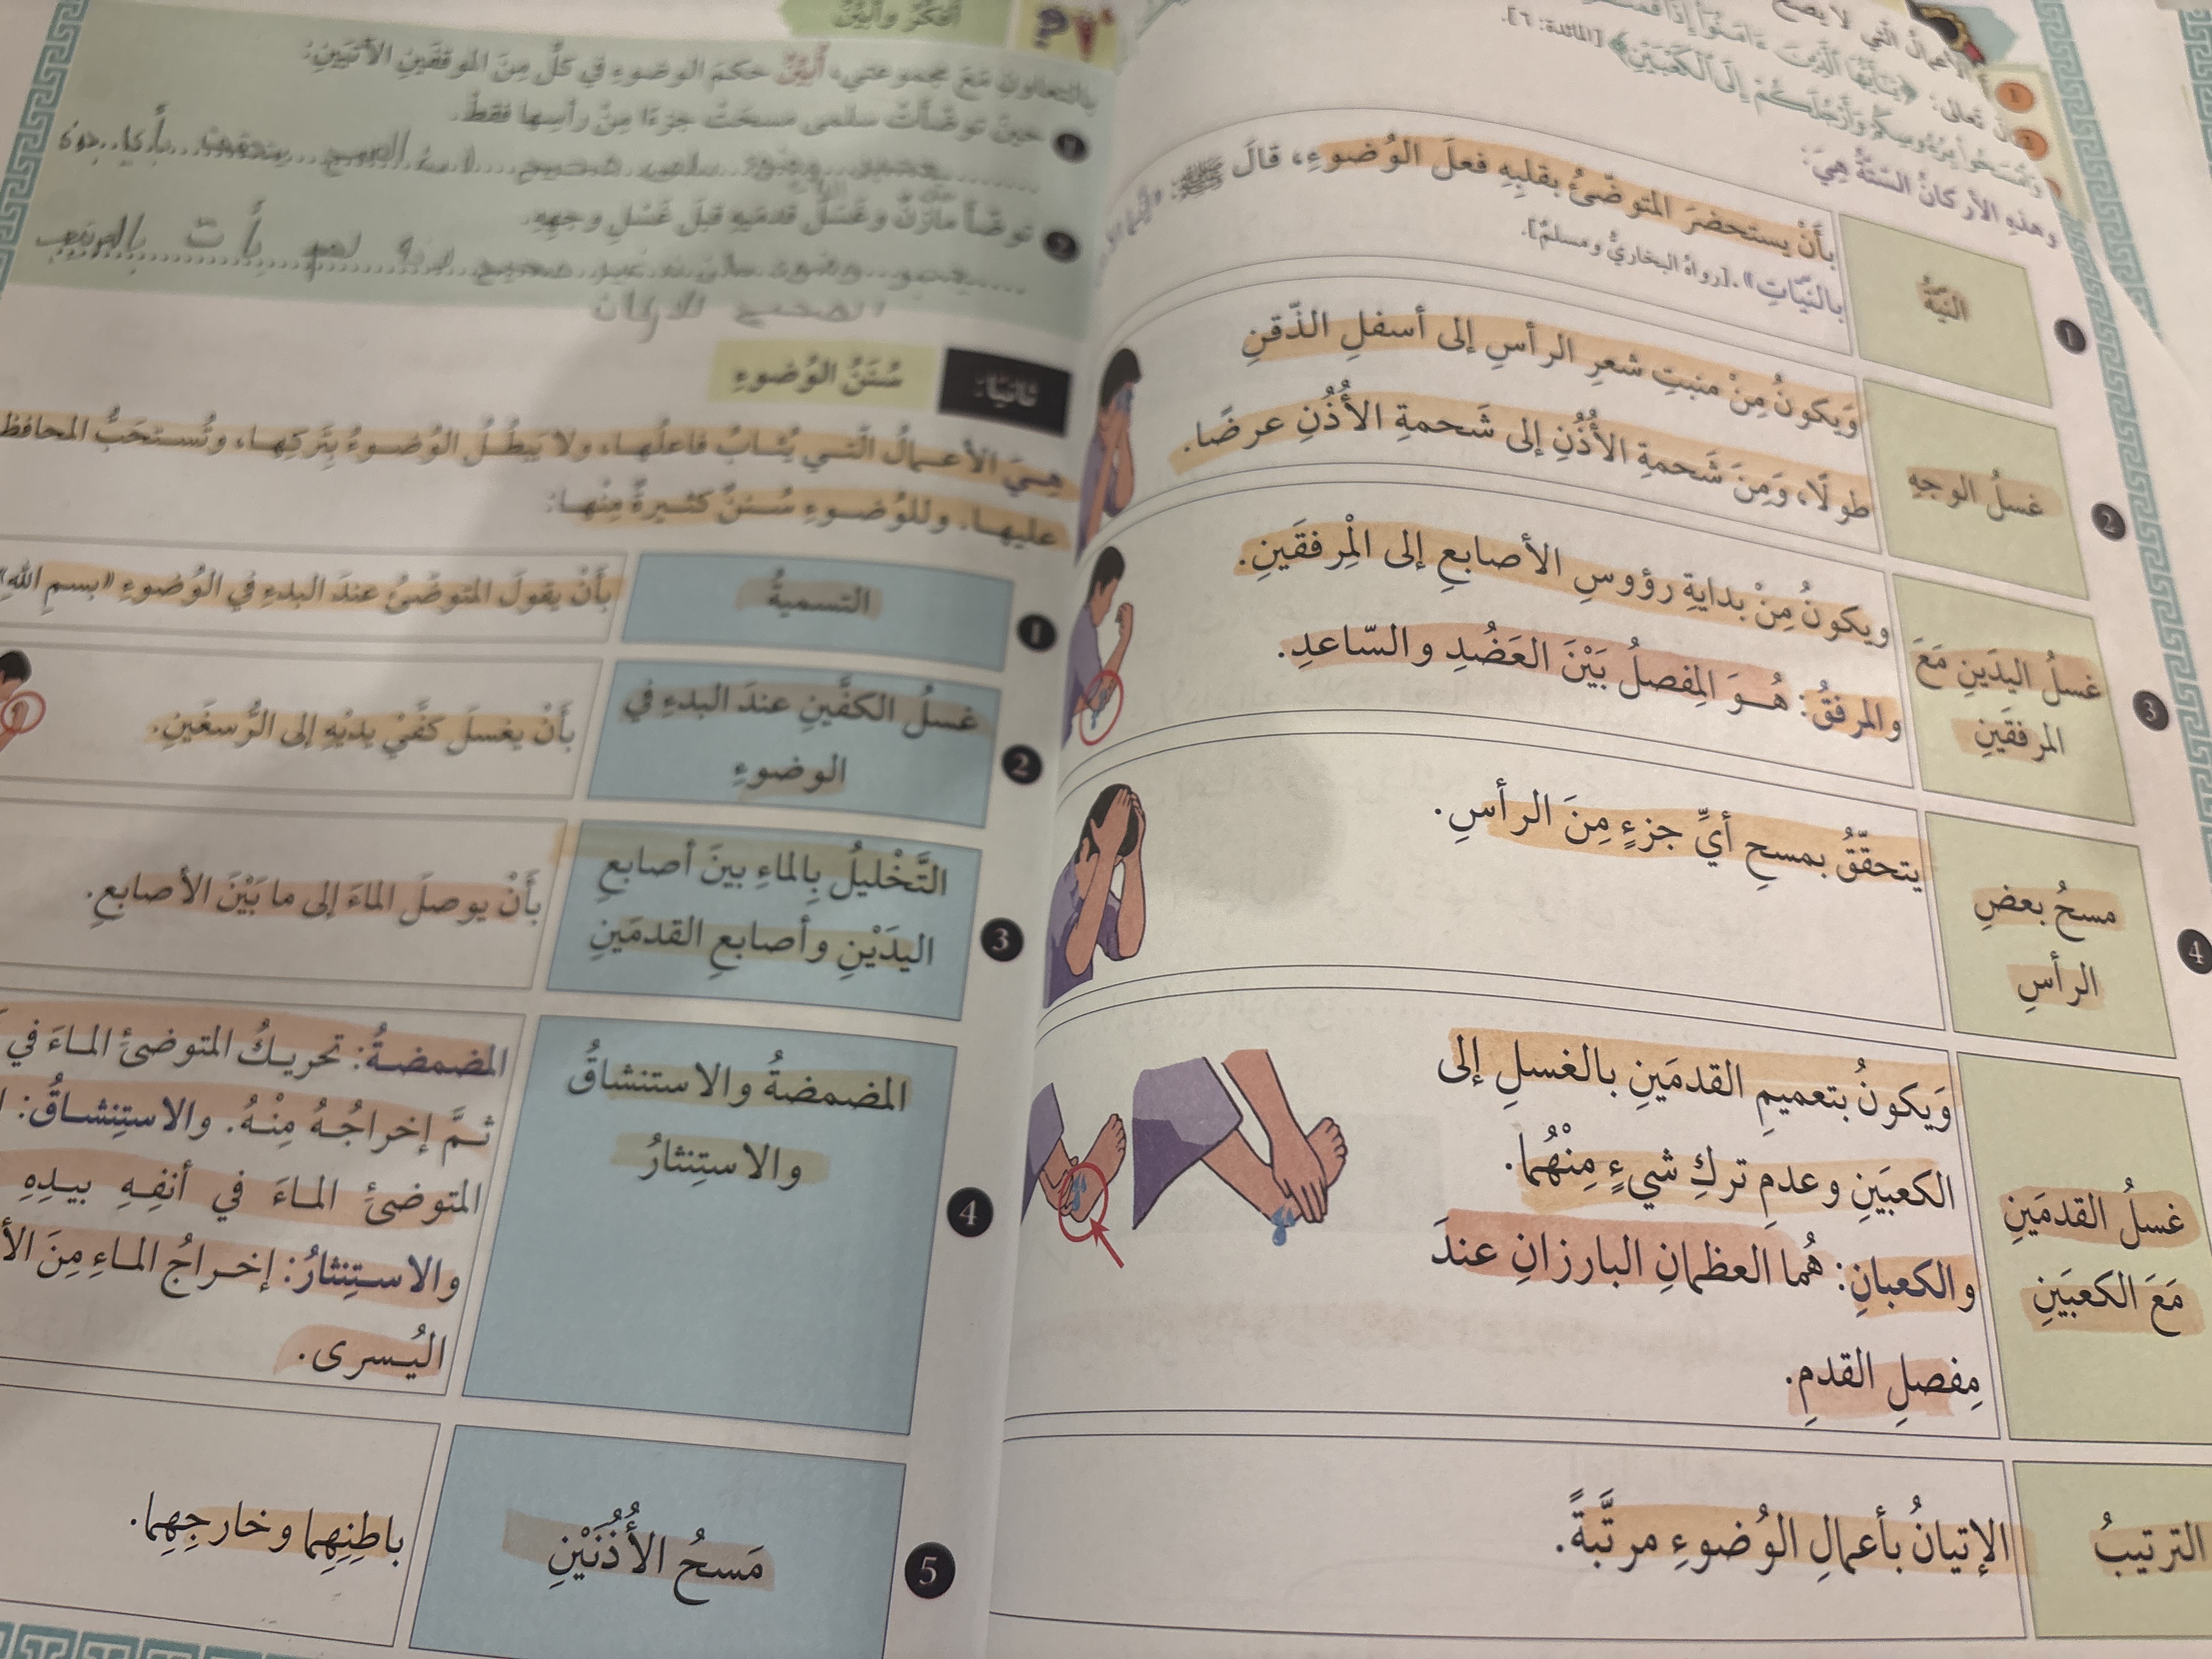 الأعمالُ التي لا يصحُّ
تعالى: ﴿يَٰٓأَيُّهَا ٱلَّذِينَ ءَامَنُوٓاْ إِذَا
وَٱمۡسَحُواْ بِرُءُوسِكُمۡ وَأَرۡجُلَكُمۡ إِلَى ٱلۡكَعۡبَيۡنِ﴾ [المائدة: ٦].
وهذِهِ الأركانُ السّتةُ هِيَ:
1
النيّةُ
بأَنْ يستحضرَ المتوضّئُ بقلبِهِ فعلَ الوُضوءِ، قالَ ﷺ:
بالنيّاتِ» [رواهُ البخاريُّ ومسلمٌ].
2
غسلُ الوجهِ
وَيكونُ مِنْ منبتِ شعرِ الرأسِ إلى أسفلِ الذّقنِ
طولًا، وَمِنَ شَحمةِ الأُذُنِ إلى شَحمةِ الأُذُنِ عرضًا.
3
غسلُ اليدَينِ مَعَ
المرفقَينِ
ويكونُ مِنْ بدايةِ رؤوسِ الأصابعِ إلى الْمِرفقَينِ.
والمرفقُ: هُوَ المِفصلُ بَيْنَ العَضُدِ والسّاعدِ.
4
مسحُ بعضِ
الرأسِ
يتحقّقُ بمسحِ أيِّ جزءٍ مِنَ الرأسِ.
غسلُ القدمَينِ
مَعَ الكعبَينِ
وَيكونُ بتعميمِ القدمَينِ بالغسلِ إلى
الكعبَينِ وعدمِ تركِ شيءٍ مِنْهُما.
والكعبانِ: هُما العظمانِ البارزانِ عندَ
مِفصلِ القدمِ.
الترتيبُ
الإتيانُ بأعمالِ الوُضوءِ مرتَّبةً.
أفكّرُ وأبيّنُ
بالتعاونِ مَعَ مجموعتي، أُبيّنُ حكمَ الوضوءِ في كلٍّ مِنَ الموقفَينِ الآتيَينِ:
1 حينَ توضّأَتْ سلمى مسحَتْ جزءًا مِنْ رأسِها فقطْ.
وضوء سلمى صحيح المسح يتحقق بأي جزء
2 توضّأَ مازنٌ وغَسَلَ قدمَيهِ قبلَ غَسْلِ وجهِهِ.
وضوء مازن غير صحيح لأنه لم يأت بالترتيب
الصحيح للأركان
ثانيًا: سُنَنُ الوُضوءِ
هِيَ الأعمالُ الّتي يُثابُ فاعلُها، ولا يَبطُلُ الوُضوءُ بِتَركِها، وتُستحَبُّ المحافظ
عليها. وللوُضوءِ سُننٌ كثيرةٌ مِنْها:
1
التسميةُ
بأَنْ يقولَ المتوضّئُ عندَ البدءِ في الوُضوءِ «بسمِ اللهِ»
2
غسلُ الكفَّينِ عندَ البدءِ في
الوضوءِ
بأَنْ يغسلَ كفَّيْ يديْهِ إلى الرُّسغَينِ.
3
التَّخْليلُ بِالماءِ بينَ أصابعِ
اليدَيْنِ وأصابعِ القدمَينِ
بأَنْ يوصلَ الماءَ إلى ما بَيْنَ الأصابعِ.
4
المضمضةُ والاستنشاقُ
والاستِنثارُ
المضمضةُ: تحريكُ المتوضئِ الماءَ في
ثمَّ إخراجُهُ مِنْهُ. والاستِنشاقُ:
المتوضئِ الماءَ في أنفِهِ بيدِهِ
والاستِنثارُ: إخراجُ الماءِ مِنَ
اليُسرى.
5
مَسحُ الأُذُنَيْنِ
باطِنِهِما وخارجِهِما.